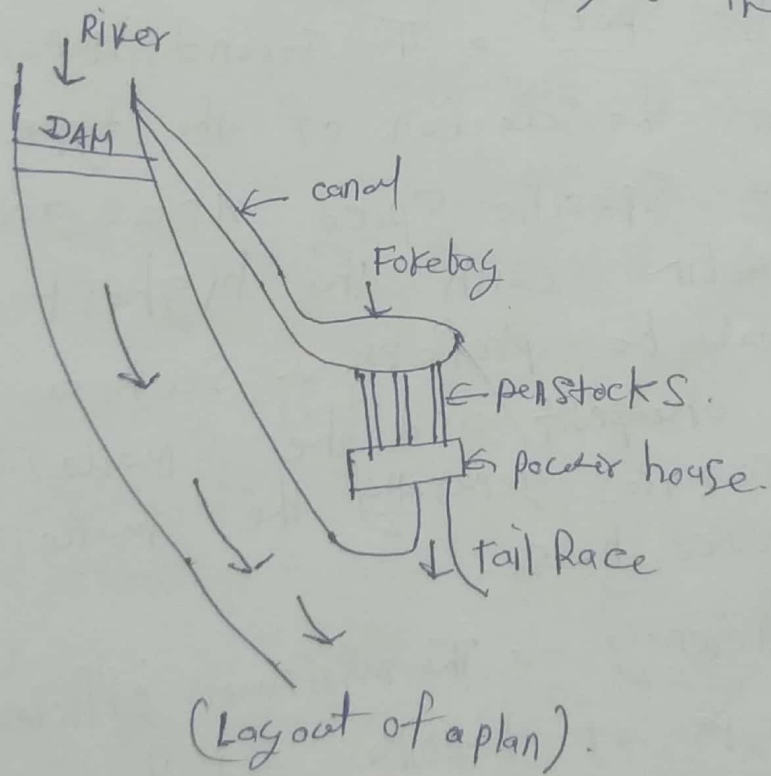 River
DAM
canal
Forebay
penstocks.
power house.
tail Race
(Layout of a plan).